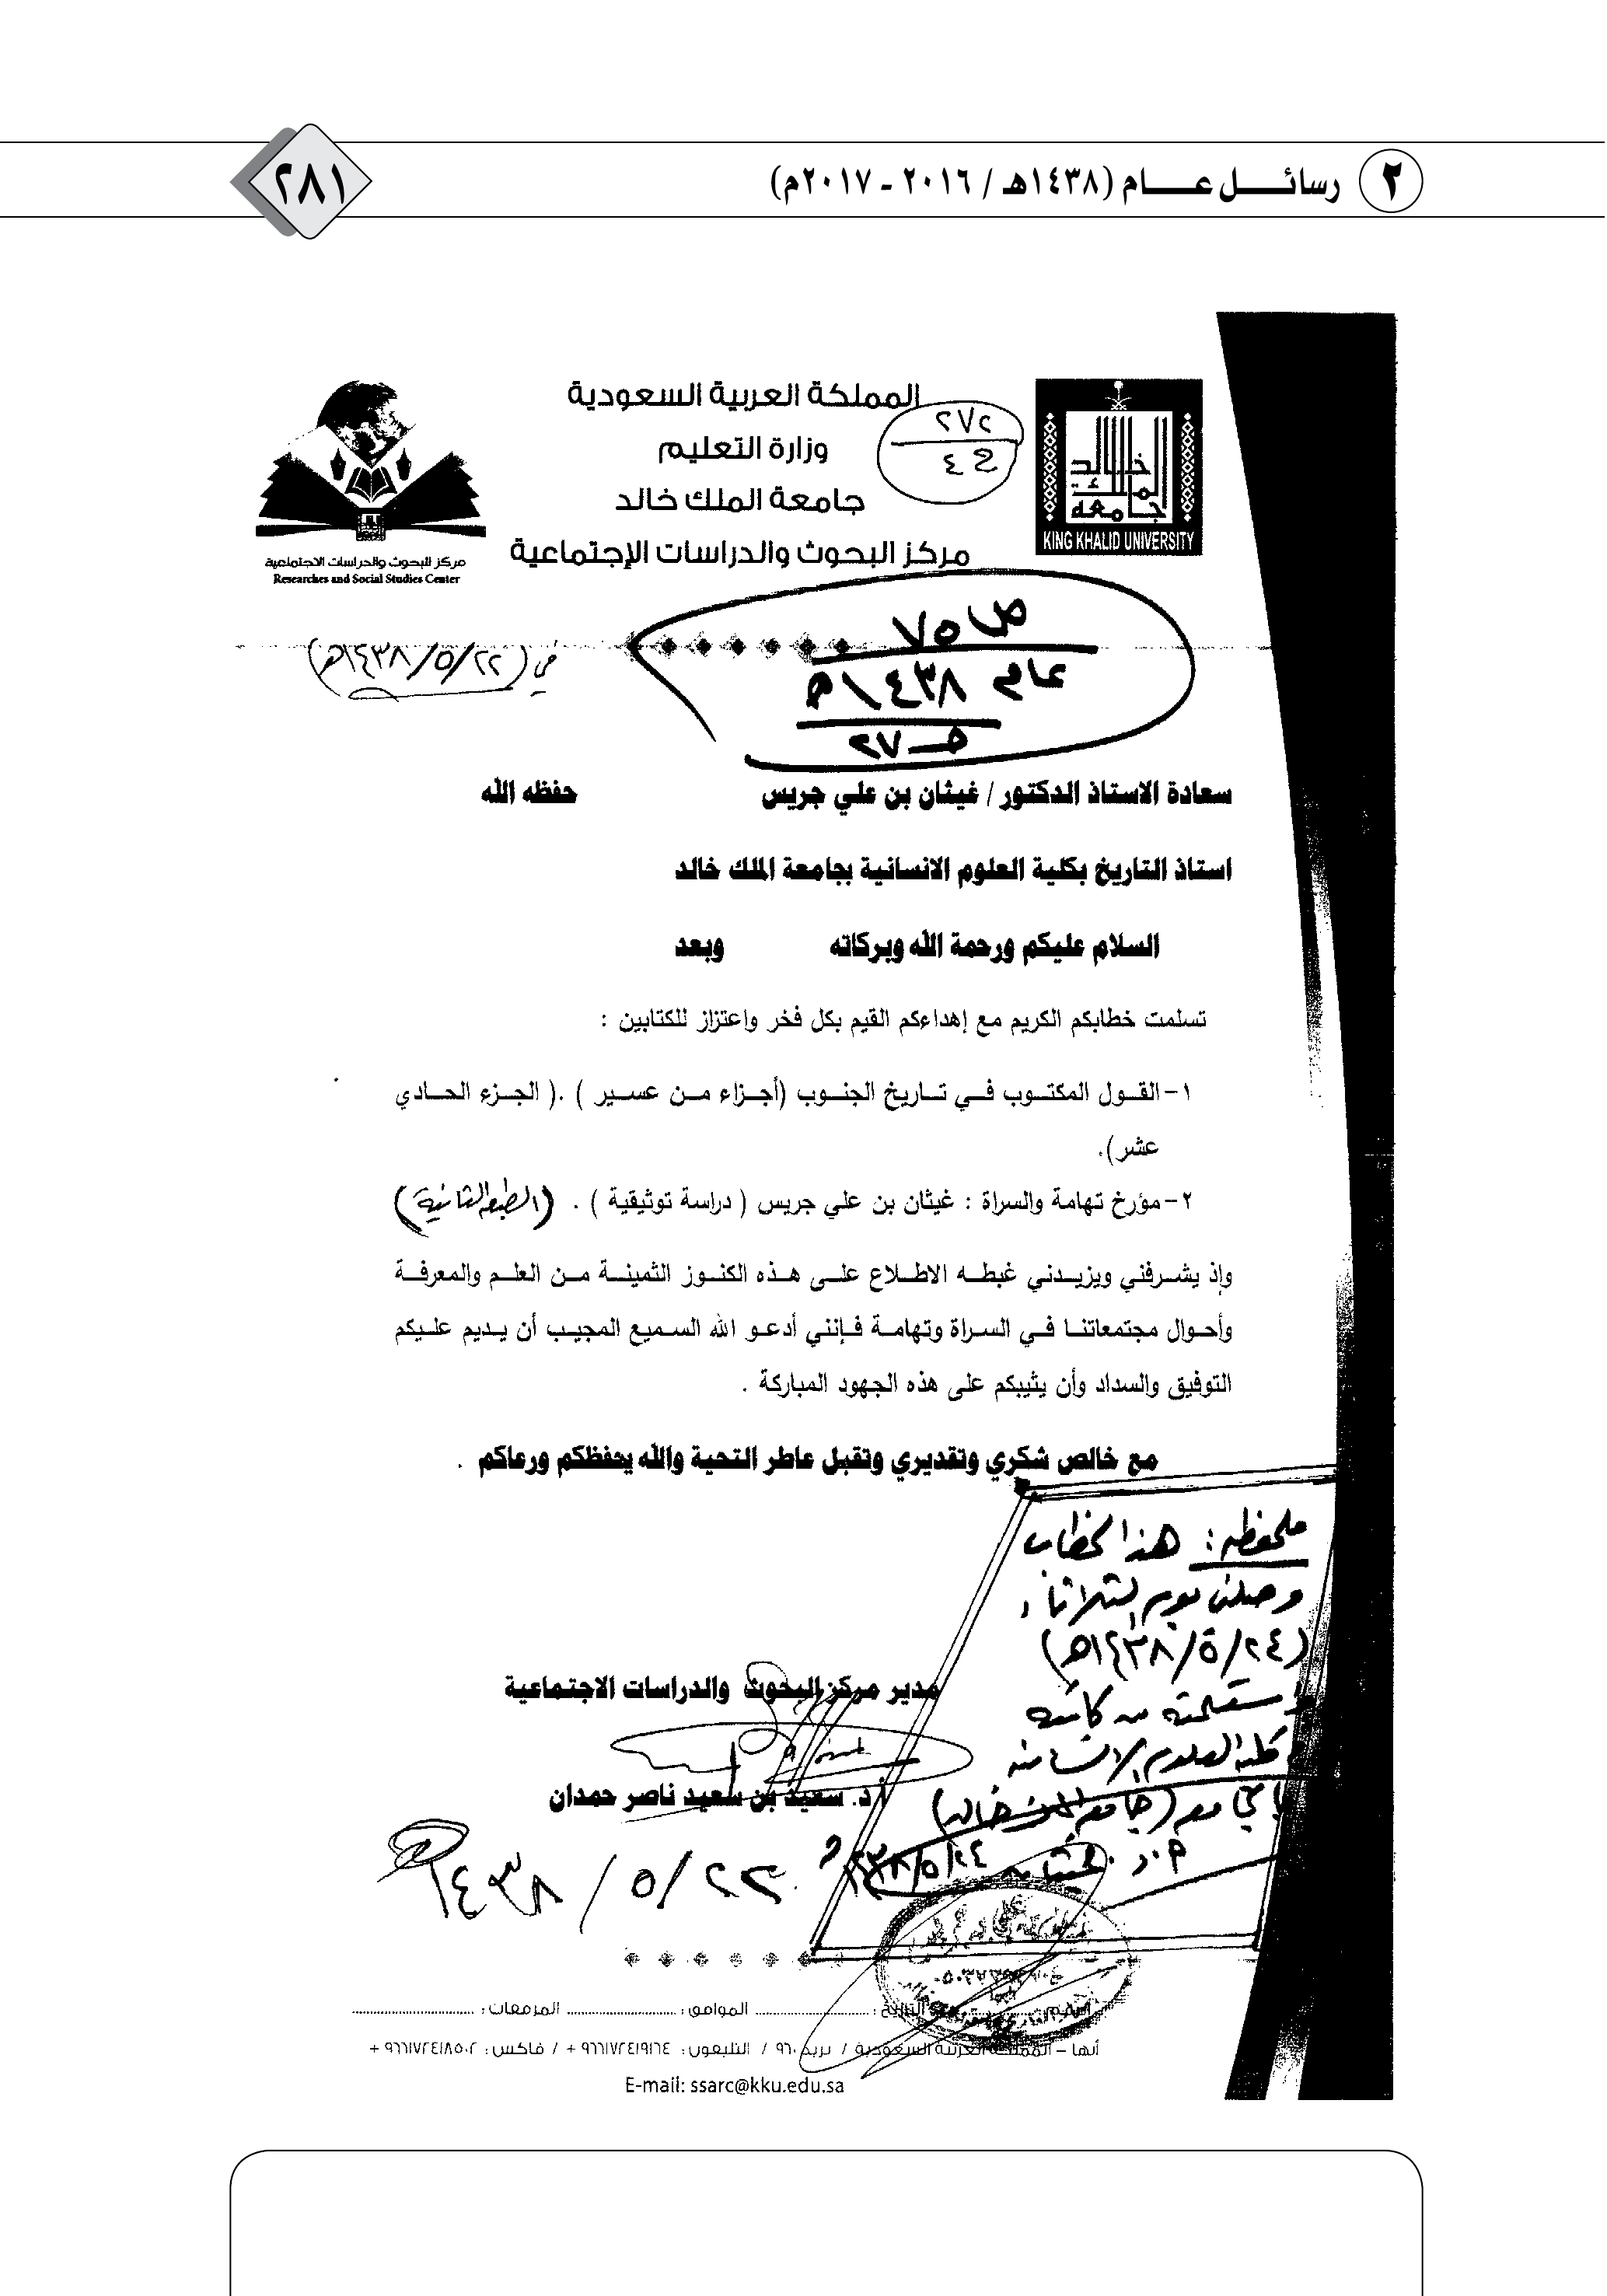 ٢ رسائــــل عــــام (١٤٣٨هـ / ٢٠١٦ ـ ٢٠١٧م)
٢٨١
المملكة العربية السعودية
وزارة التعليم
جامعة الملك خالد
مركز البحوث والدراسات الإجتماعية
٢٧٢
٤ ج
جامعة الملك خالد
KING KHALID UNIVERSITY
مركز البحوث والدراسات الاجتماعية
Researches and Social Studies Center
ص ٧٥
عام ١٤٣٨هـ
في (٢٢/٥/١٤٣٨هـ)
سعادة الاستاذ الدكتور / غيثان بن علي جريس حفظه الله
استاذ التاريخ بكلية العلوم الانسانية بجامعة الملك خالد
السلام عليكم ورحمة الله وبركاته وبعد
تسلمت خطابكم الكريم مع إهداءكم القيم بكل فخر واعتزاز للكتابين :
١- القـول المكتـوب فـي تـاريخ الجنـوب (أجـزاء مـن عسـير ) .( الجـزء الحـادي
عشر).
٢- مؤرخ تهامة والسراة : غيثان بن علي جريس ( دراسة توثيقية ) . (الطبعة الثانية)
وإذ يشـرفني ويزيـدني غبطـه الاطـلاع علـى هـذه الكنـوز الثمينـة مـن العلـم والمعرفـة
وأحـوال مجتمعاتنـا فـي السـراة وتهامـة فـإنني أدعـو الله السـميع المجيـب أن يـديم علـيكم
التوفيق والسداد وأن يثيبكم على هذه الجهود المباركة .
مع خالص شكري وتقديري وتقبل عاطر التحية والله يحفظكم ورعاكم .
ملحوظه : هذا الخطاب
وصلني يوم الثلاثاء
(٢٤/٥/١٤٣٨هـ)
كلية العلوم الانسانية
(جامعة الملك خالد)
٢٤/٥/١٤٣٨
مدير مركز البحوث والدراسات الاجتماعية
أ.د. سعيد بن سعيد ناصر حمدان
٢٢/٥/١٤٣٨
الرقم : التاريخ : الموافق : المرفقات :
أبها – المملكة العربية السعودية / بريد ٩٦٠ / التليفون : ٩٦٦١٧٢٤١٩١٦٤ + / فاكس : ٩٦٦١٧٢٤١٨٥٠٢ +
E-mail: ssarc@kku.edu.sa